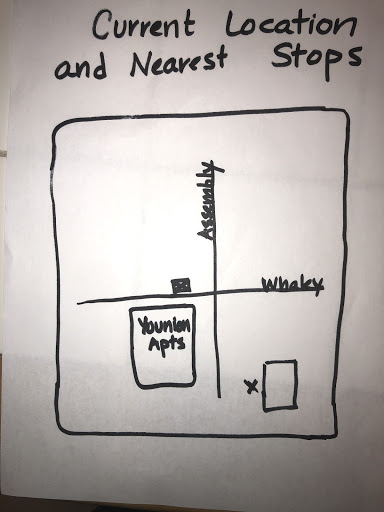 Current Location
and Nearest Stops
Assembly
Whaley
Younion
Apts
X